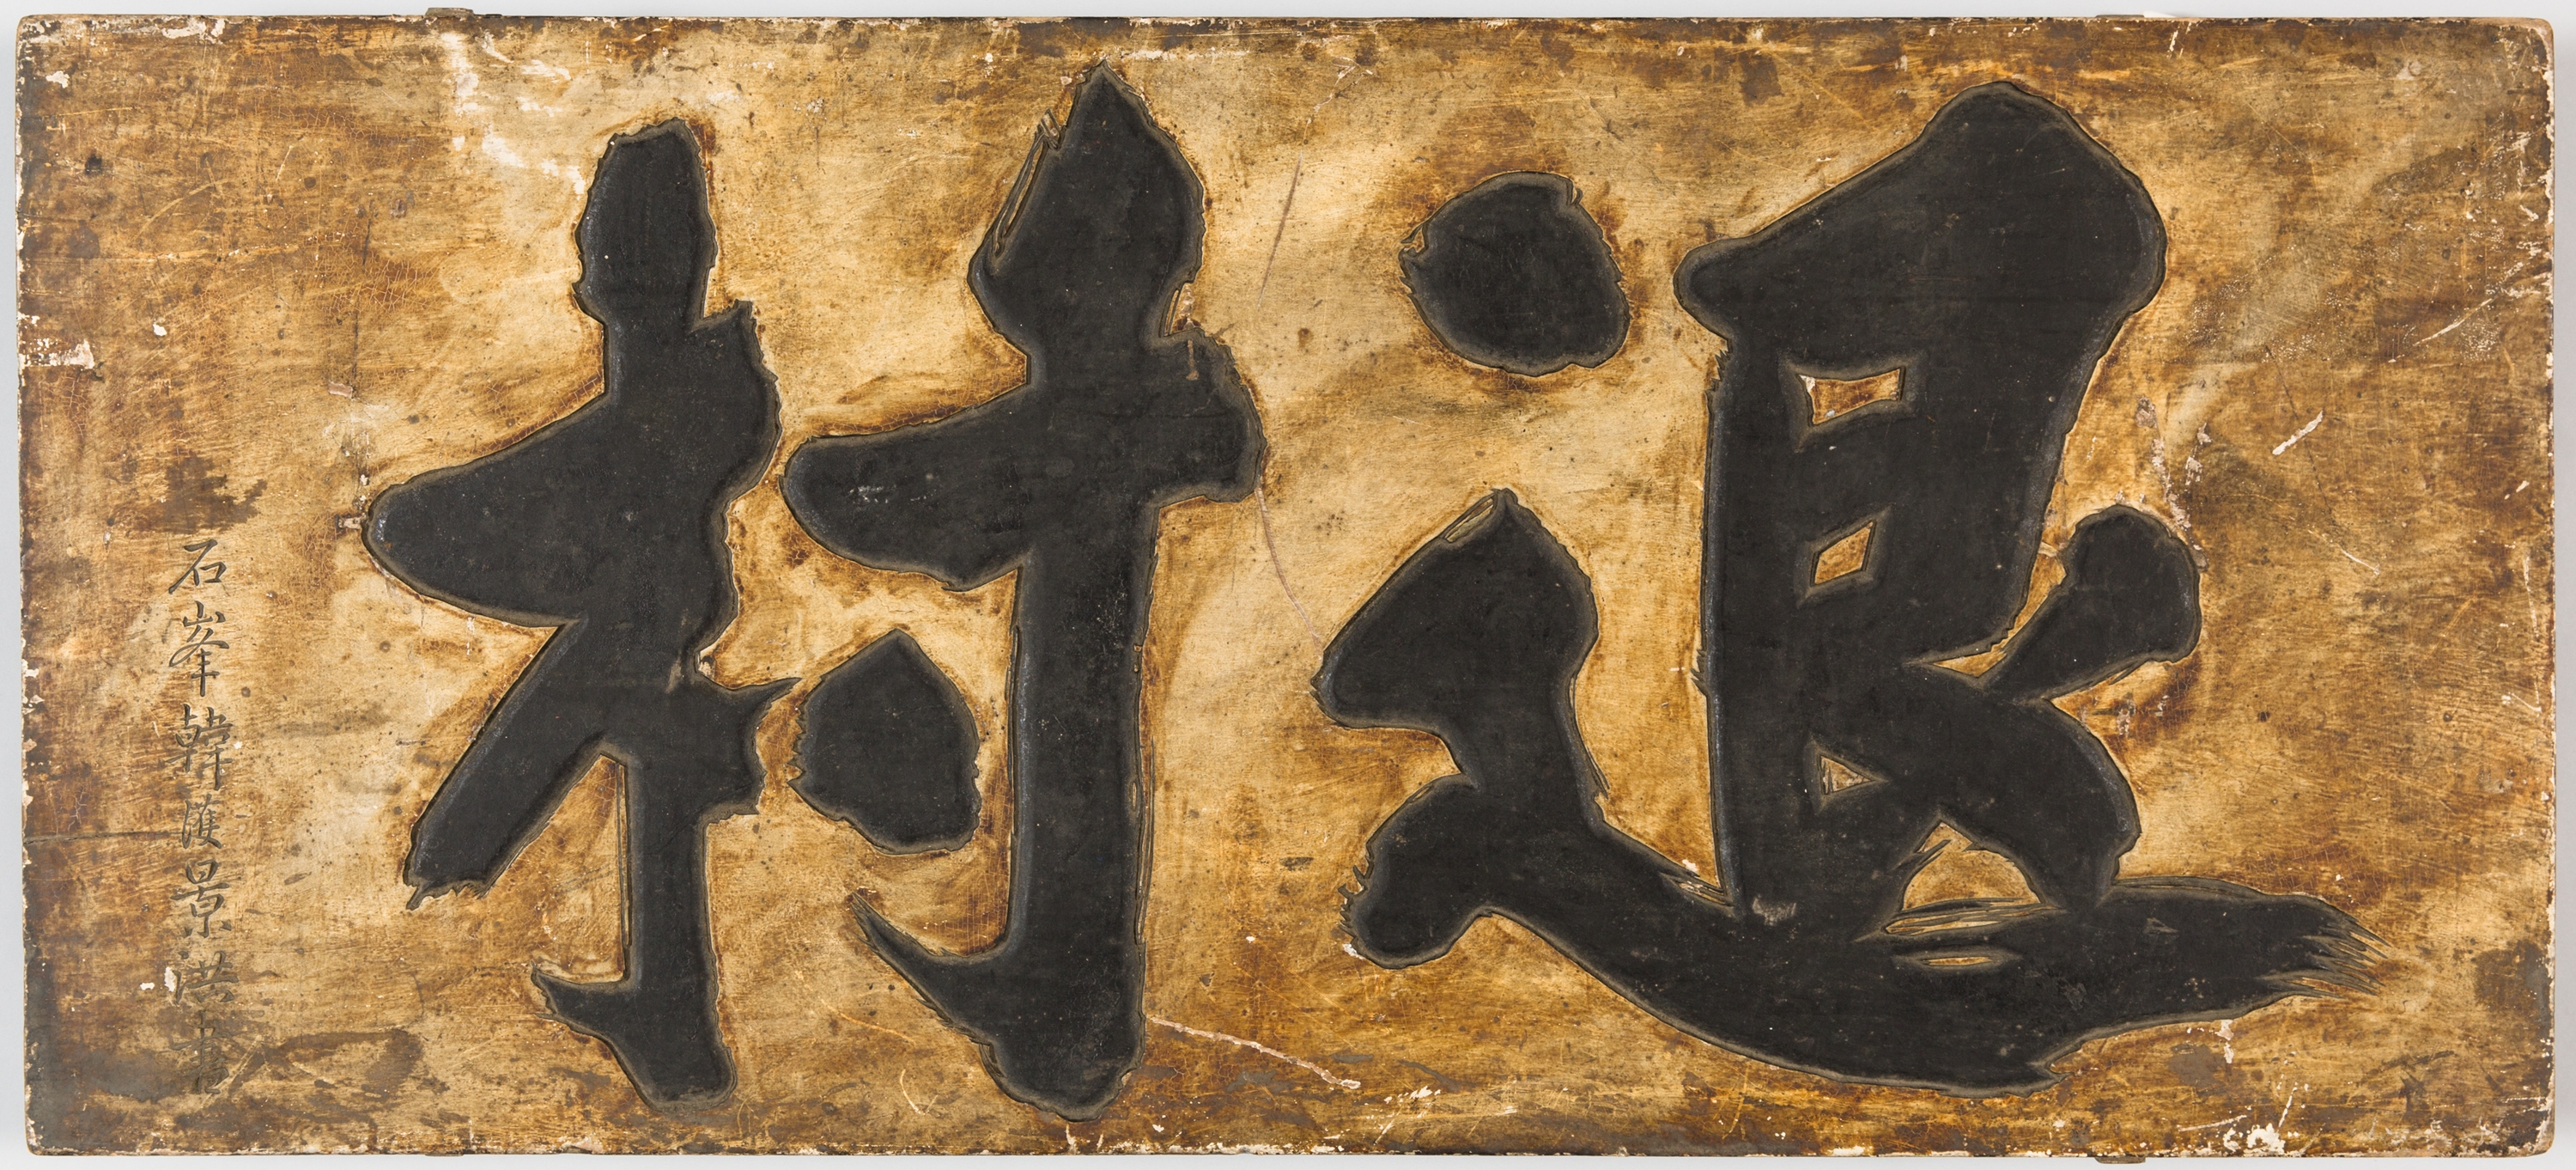 退村
石峯韓濩景洪書